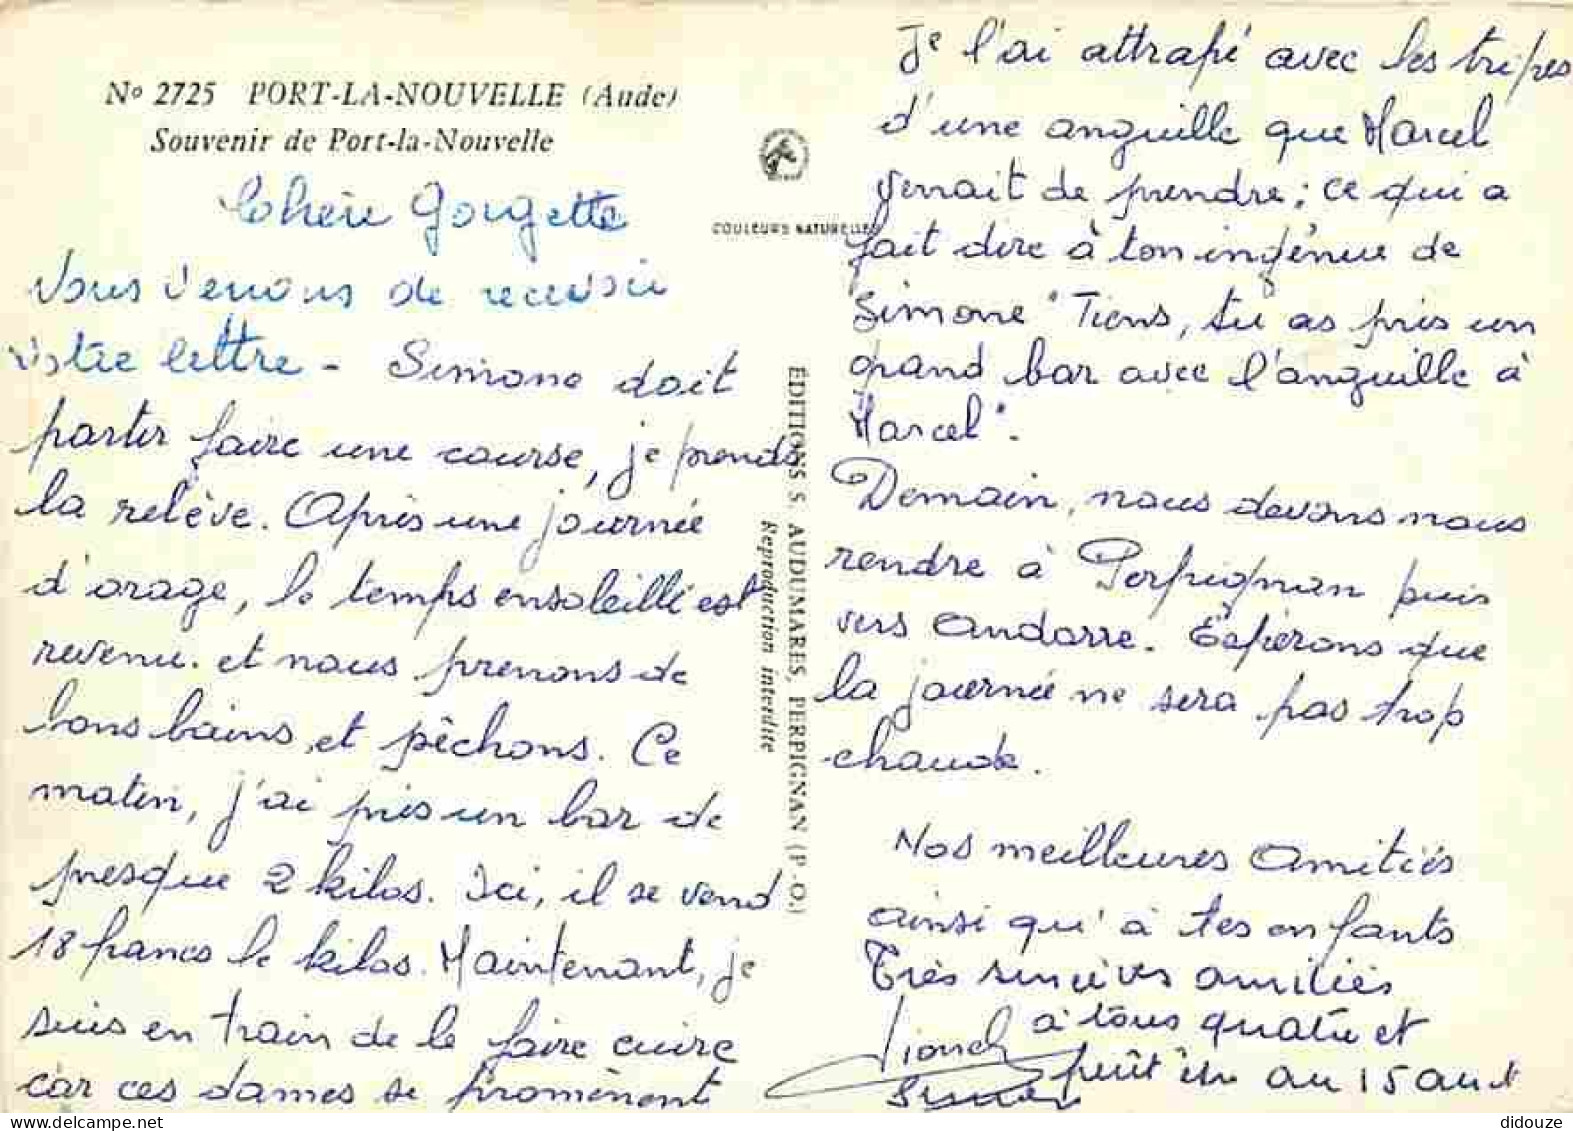 N° 2725 PORT-LA-NOUVELLE (Aude)
Souvenir de Port-la-Nouvelle
COULEURS NATURELLES
ÉDITIONS S. AUDUMARES, PERPIGNAN (P.-O.)
Reproduction interdite
Chère Gorgette
Nous venons de recevoir
votre lettre - Simone doit
partir faire une course, je prends
la relève. Après une journée
d'orage, le temps ensoleillé est
revenu. et nous prenons de
bons bains, et pêchons. Ce
matin, j'ai pris un bar de
presque 2 kilos. Ici, il se vend
18 francs le kilos. Maintenant, je
suis en train de le faire cuire
car ces dames se promènent
Je l'ai attrapé avec les tripes
d'une anguille que Marcel
venait de prendre; ce qui a
fait dire à ton ingénue de
Simone "Tiens, tu as pris un
grand bar avec l'anguille à
Marcel".
Demain, nous devons nous
rendre à Perpignan puis
vers Andorre. Espérons que
la journée ne sera pas trop
chaude.
Nos meilleures amitiés
ainsi qu'à tes enfants
Très sincères amitiés
à tous quatre et
peut être au 15 aout
Lionel
didouze